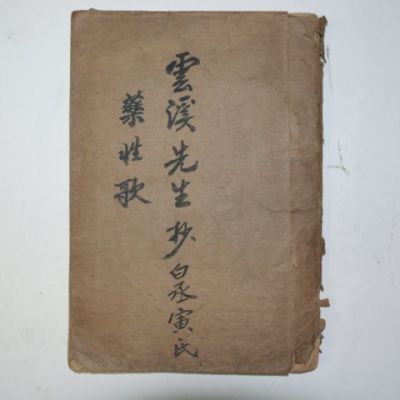 雲溪先生抄 白 寅氏
藥性歌